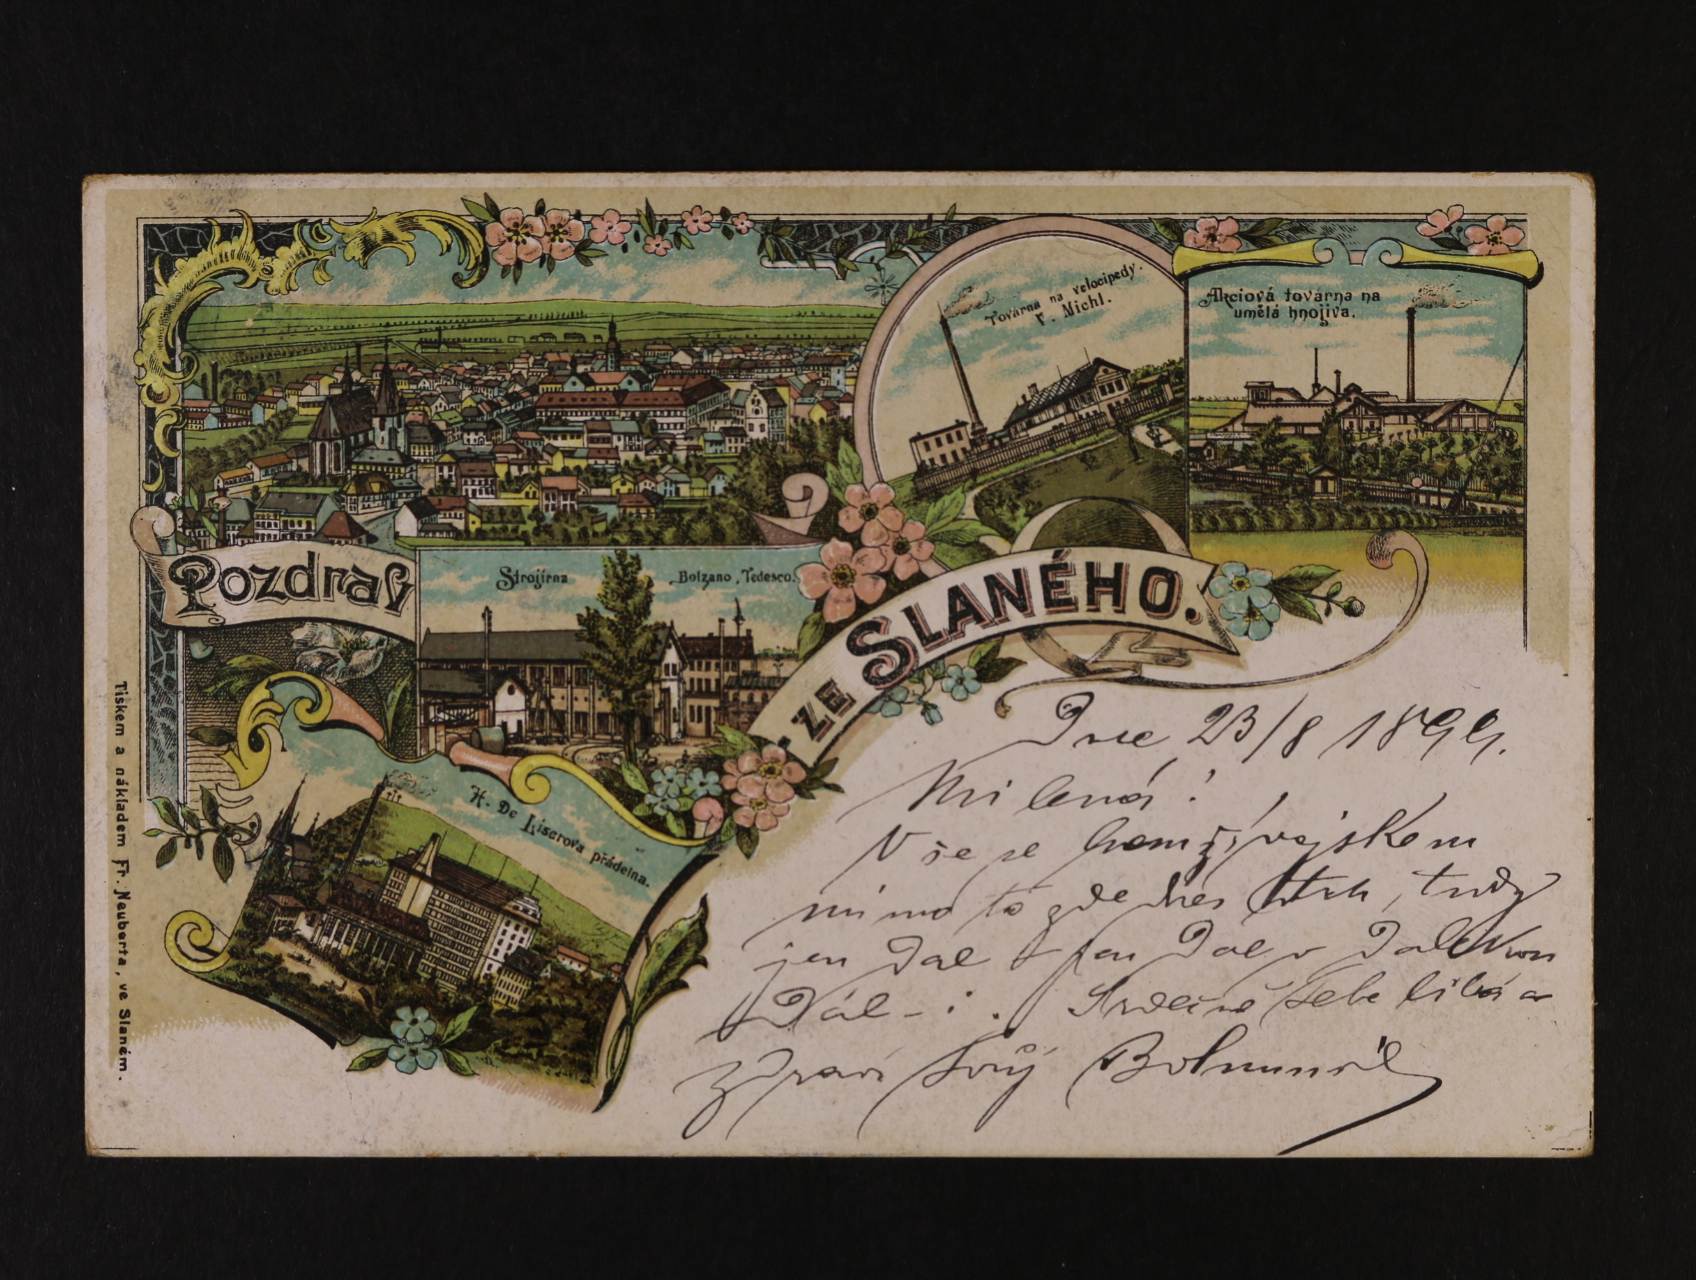 Továrna na velocipedy.
F. Michl.
Akciová továrna na
umělá hnojiva.
Pozdrav
ze Slaného.
Strojírna Bolzano, Tedesco.
H. De Liserova přádelna.
Tiskem a nákladem Fr. Neuberta, ve Slaném.
Dne 23/8 1899.
Milená!
Vše se hemží vojskem
mimo to zde dnes trh, tudy
jen dál a jen dál v
Dál - : . Srdečně Tebe líbá a
zdraví Tvůj